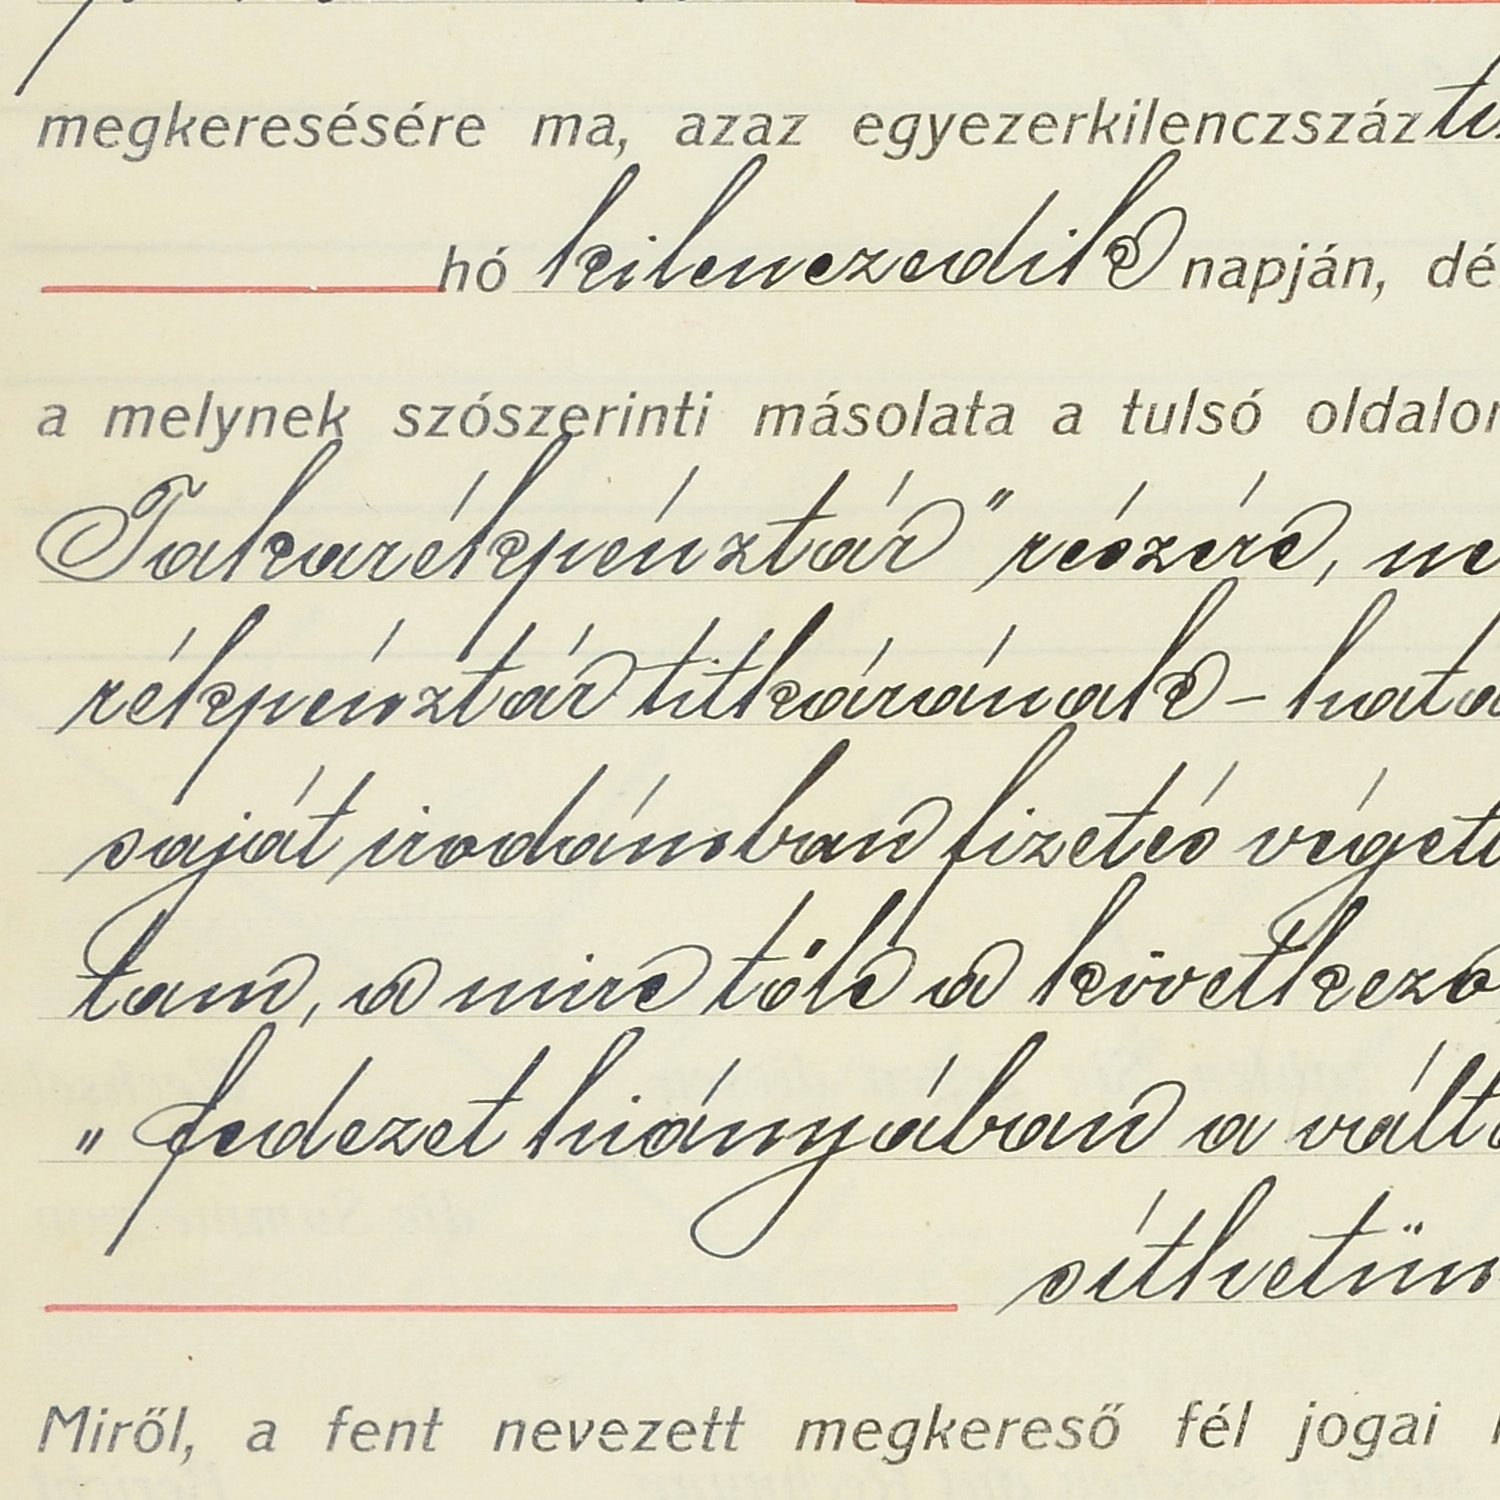 megkeresésére ma, azaz egyezerkilenczszáz
hó kilenczedik napján, dé
a melynek szószerinti másolata a tulsó oldalon
Takarékpénztár" részére, ne
rékpénztár titkárának – hata
saját irodámban fizetés végett
tam, a mire tőle a következő
„fedezet hiányában a vált
síthetün
Miről, a fent nevezett megkereső fél jogai